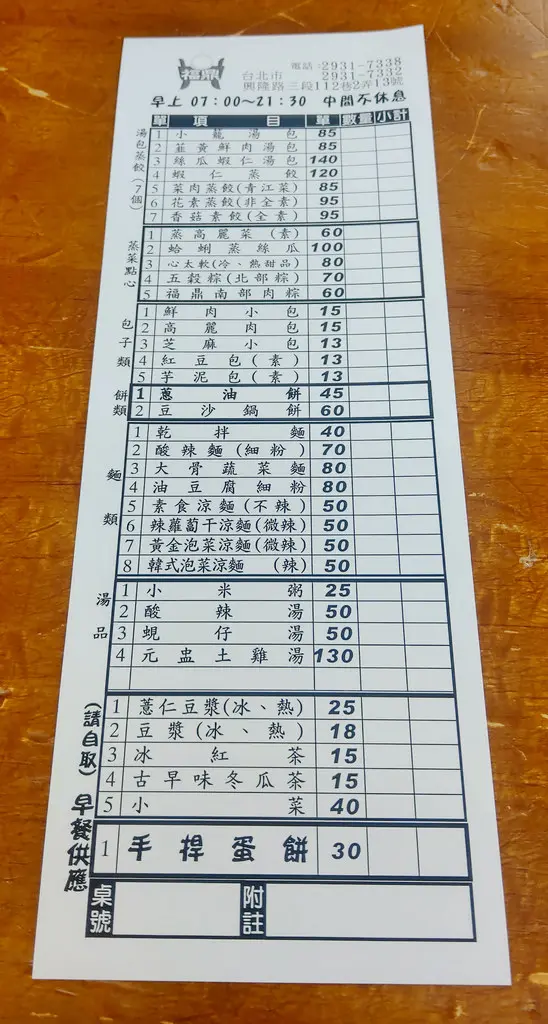 福鼎
電話:2931-7338
台北市 2931-7332
興隆路三段112巷2弄13號
早上 07:00~21:30 中間不休息
單 項目 單 數量 小計
湯包蒸餃(7個)
1 小籠湯包 85
2 韮黃鮮肉湯包 85
3 絲瓜蝦仁湯包 140
4 蝦仁蒸餃 120
5 菜肉蒸餃(青江菜) 85
6 花素蒸餃(非全素) 95
7 香菇素餃(全素) 95
蒸菜點心
1 蒸高麗菜(素) 60
2 蛤蜊蒸絲瓜 100
3 心太軟(冷、熱甜品) 80
4 五穀粽(北部粽) 70
5 福鼎南部肉粽 60
包子類
1 鮮肉小包 15
2 高麗肉包 15
3 芝麻小包 13
4 紅豆包(素) 13
5 芋泥包(素) 13
餅類
1 蔥油餅 45
2 豆沙鍋餅 60
麵類
1 乾拌麵 40
2 酸辣麵(細粉) 70
3 大骨蔬菜麵 80
4 油豆腐細粉 80
5 素食涼麵(不辣) 50
6 辣蘿蔔干涼麵(微辣) 50
7 黃金泡菜涼麵(微辣) 50
8 韓式泡菜涼麵(辣) 50
湯品
1 小米粥 25
2 酸辣湯 50
3 蜆仔湯 50
4 元盅土雞湯 130
(請自取)
1 薏仁豆漿(冰、熱) 25
2 豆漿(冰、熱) 18
3 冰紅茶 15
4 古早味冬瓜茶 15
5 小菜 40
早餐供應
1 手捍蛋餅 30
桌號 附註